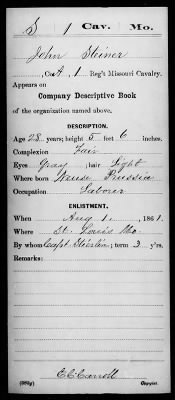 S | 1 | Cav. | Mo.
John Steiner
, Co. A, 1 Reg't Missouri Cavalry.
Appears on
Company Descriptive Book
of the organization named above.
DESCRIPTION.
Age 28 years; height 5 feet 6 inches.
Complexion Fair
Eyes Gray; hair Light
Where born Prussia
Occupation Laborer
ENLISTMENT.
When Aug 1, 1861.
Where St. Louis Mo.
By whom Capt. ; term 3 y'rs.
Remarks:
E C Carroll
Copyist.